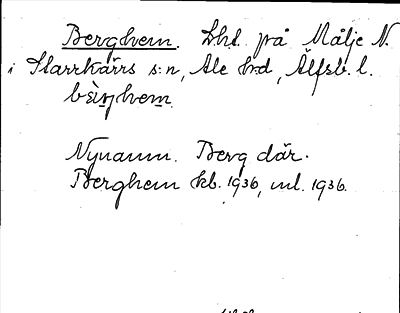 Berghem. Lht. på Målje N.
i Starrkärrs s:n, Ale hd, Älfsb. l.
bærjhem
Nynamn. Berg där.
Berghem kb. 1936, ml. 1936.